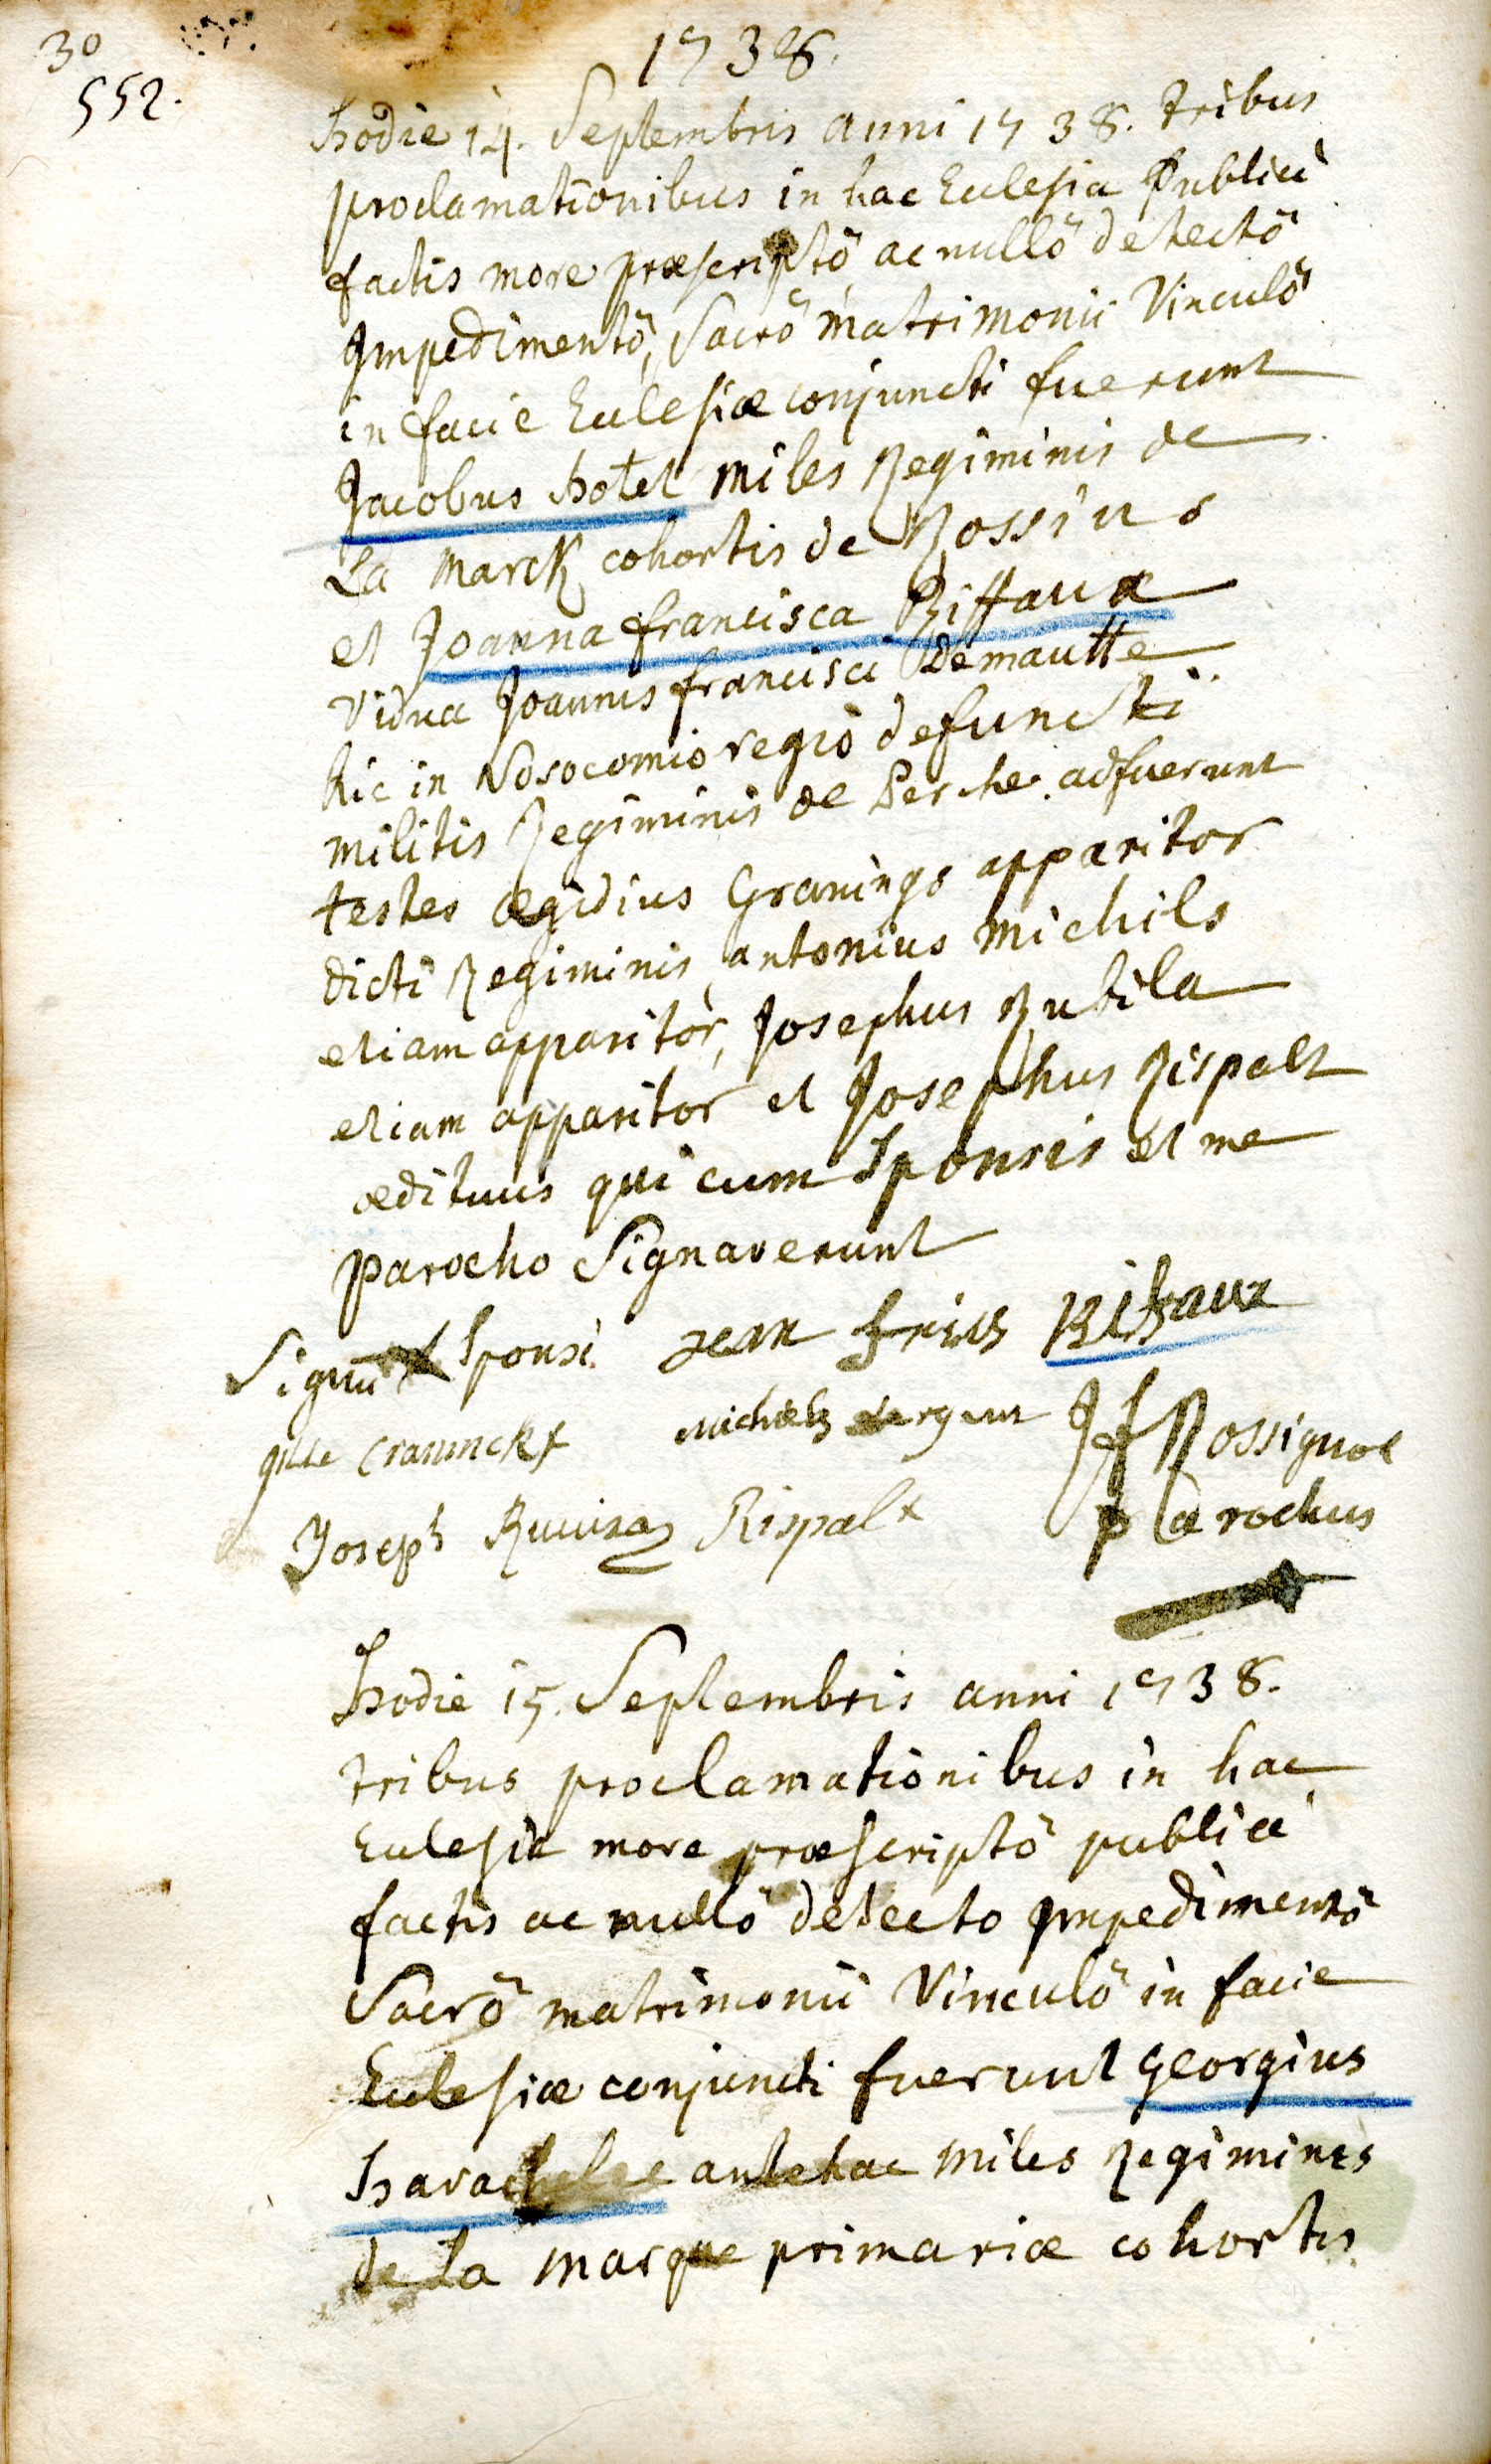 30
552.
1738.
hodie 14. Septembris anni 1738. tribus
proclamationibus in hac Eclesia Publice
factis more præscriptõ ac nullõ detectõ
Impedimentõ, Sacrõ matrimonii Vinculõ
in facie Eclesiæ conjuncti fuerunt
Jacobus hotel miles Regiminis de
La marck cohortis de
et Joanna francisca Riffaux
vidua Joannis francisci Demautte
hic in Nosocomiõ regiõ defuncti
militis Regiminis de Perche. adfuerunt
testes ægidius Granings apparitor
dicti Regiminis, antonius michils
etiam apparitor, Josephus Rubila
etiam apparitor et Josephus Rispalt
ædituus qui cum Sponsis et me
parocho Signaverunt
Signũ Sponsi Rifaux
michiels sergent Jf Rossignol
Joseph Rispalt parochus
hodie 15. Septembris anni 1738.
tribus proclamationibus in hac
Eclesia more præscriptõ publice
factis ac nullõ detecto Impedimentõ
Sacrõ matrimonii Vinculõ in facie
Eclesiæ conjuncti fuerunt georgius
antehac miles Regiminis
de La marque primariæ cohortis